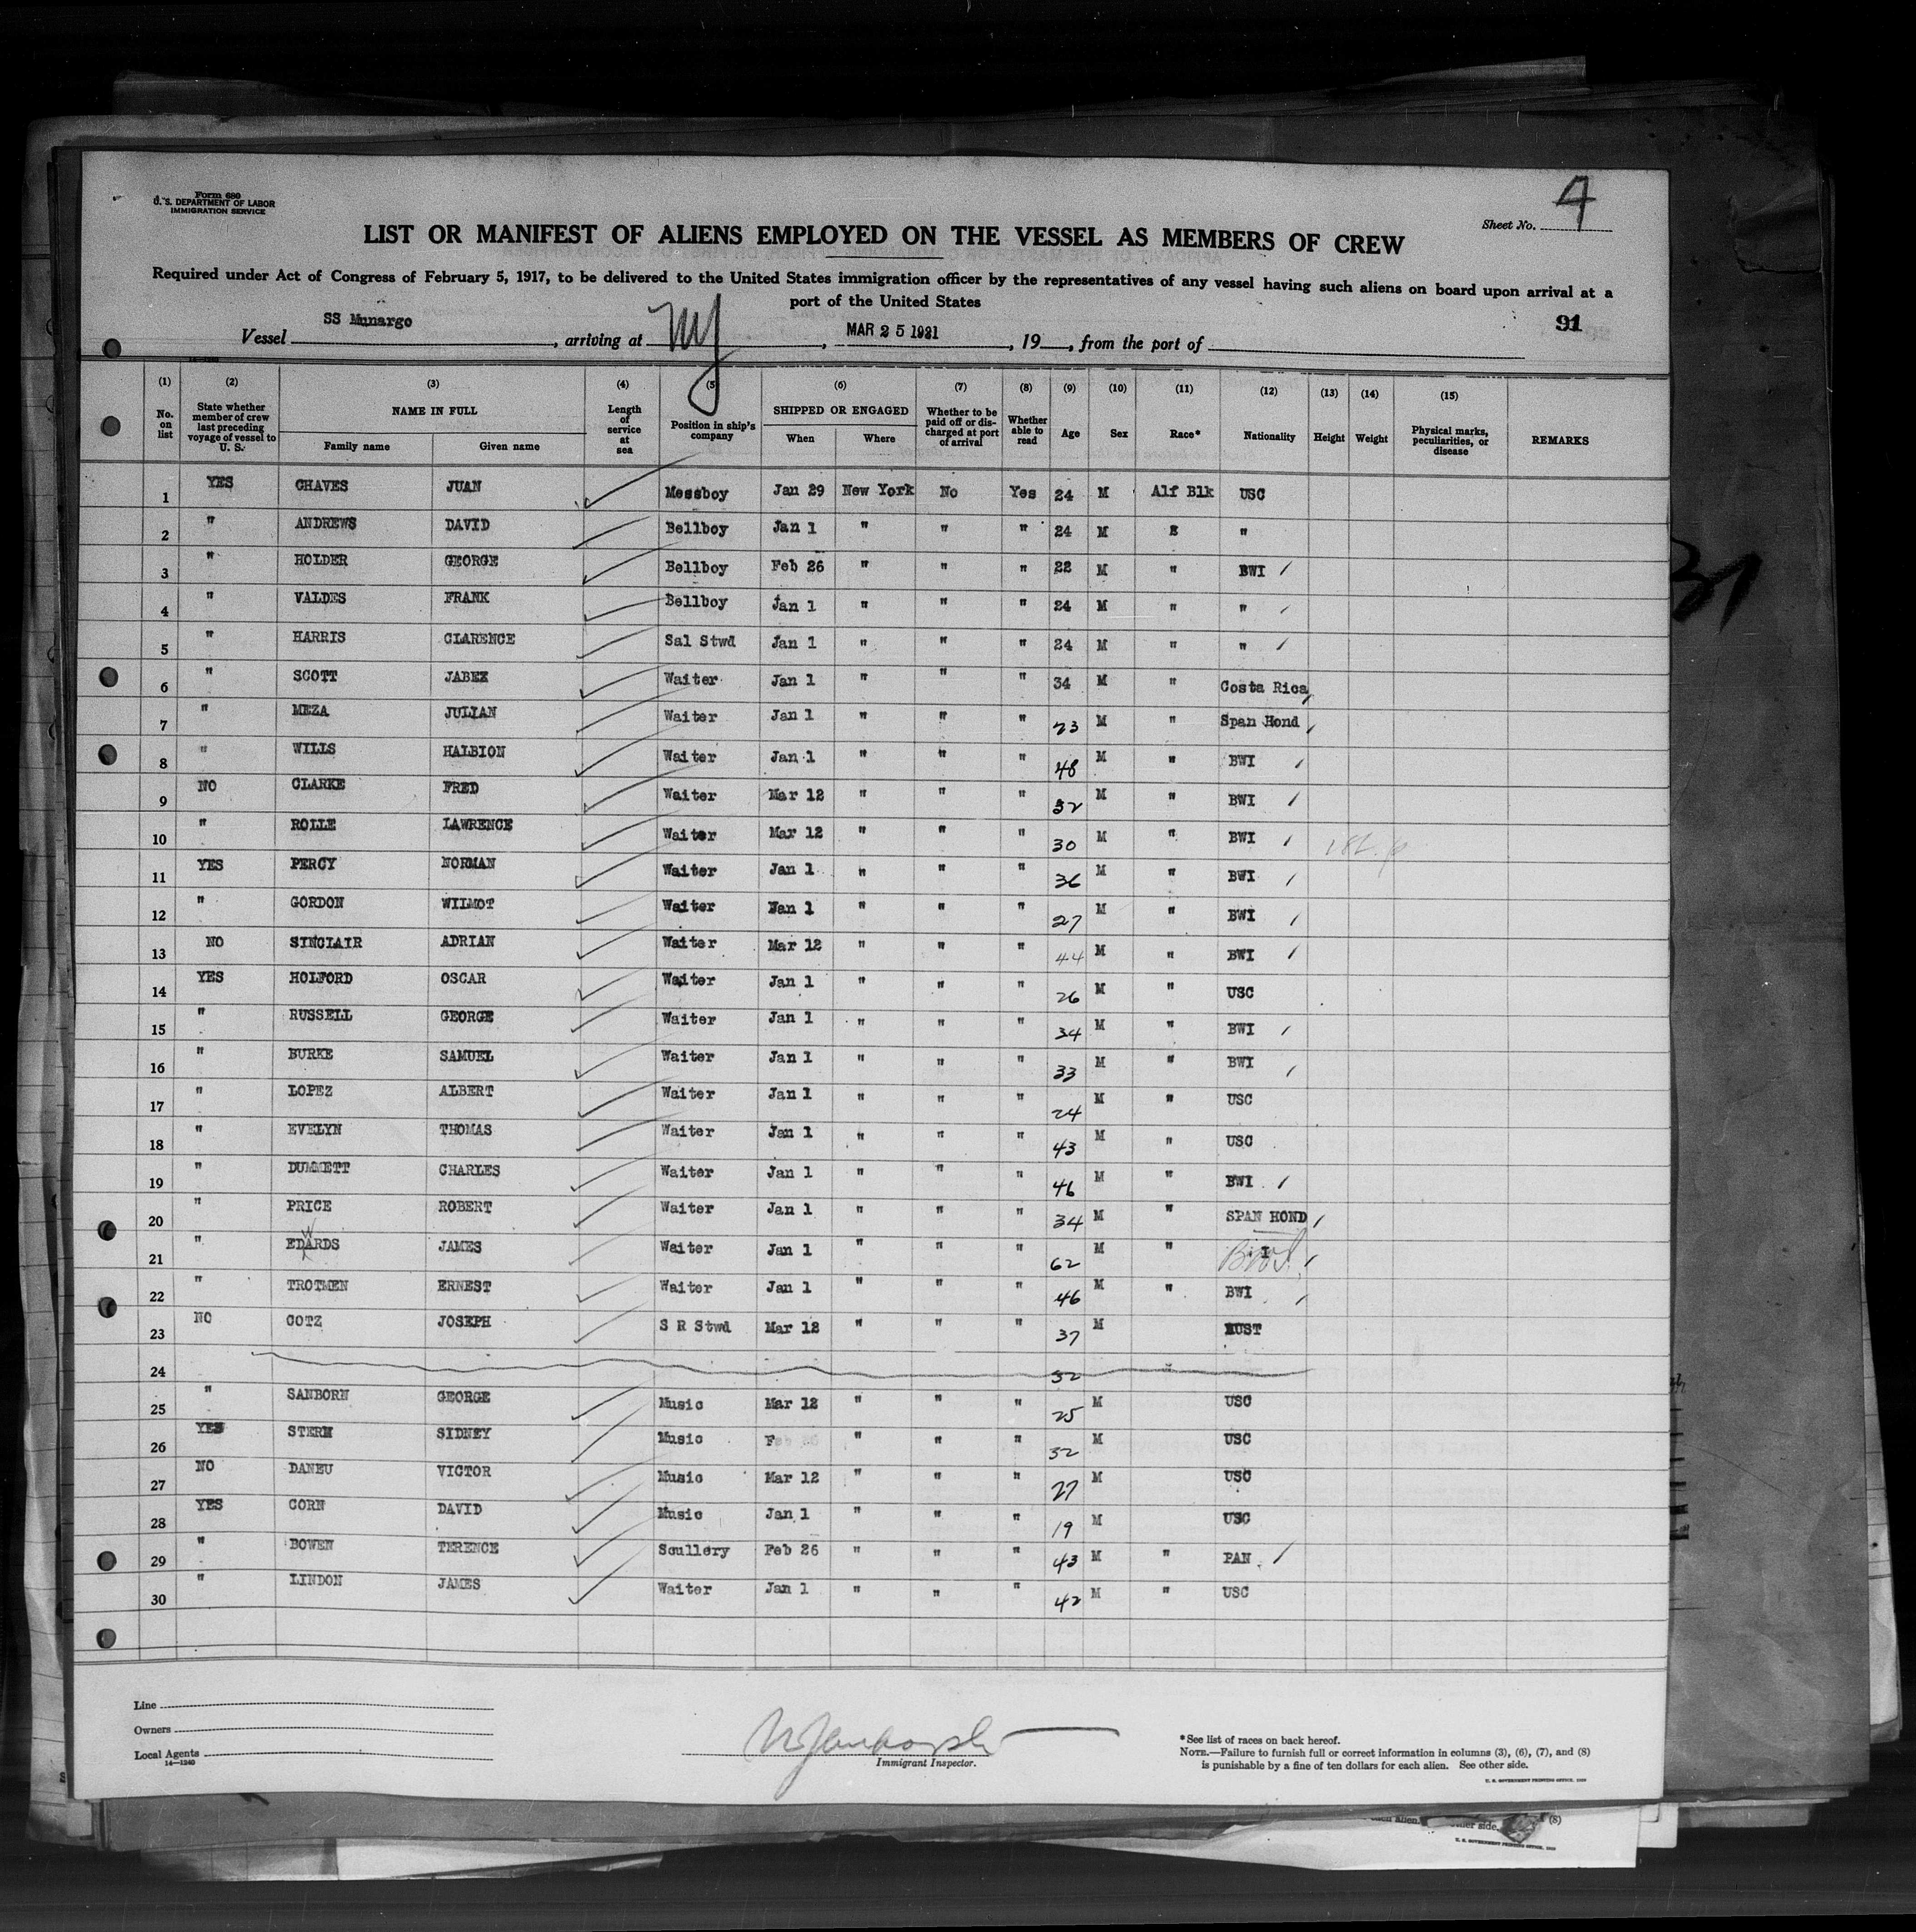 Form 680
U. S. DEPARTMENT OF LABOR
IMMIGRATION SERVICE
Sheet No. 4
LIST OR MANIFEST OF ALIENS EMPLOYED ON THE VESSEL AS MEMBERS OF CREW
Required under Act of Congress of February 5, 1917, to be delivered to the United States immigration officer by the representatives of any vessel having such aliens on board upon arrival at a
port of the United States
91
Vessel SS Munargo, arriving at NY, MAR 25 1921, 19, from the port of
(1) (2) (3) (4) (5) (6) (7) (8) (9) (10) (11) (12) (13) (14) (15)
No. on list State whether member of crew last preceding voyage of vessel to U. S. NAME IN FULL Family name Given name Length of service at sea Position in ship's company SHIPPED OR ENGAGED When Where Whether to be paid off or discharged at port of arrival Whether able to read Age Sex Race* Nationality Height Weight Physical marks, peculiarities, or disease REMARKS
1 YES CHAVES JUAN Messboy Jan 29 New York No Yes 24 M Alf Blk USC
2 " ANDREWS DAVID Bellboy Jan 1 " " " 24 M "
3 " HOLDER GEORGE Bellboy Feb 26 " " " 22 M " BWI
4 " VALDES FRANK Bellboy Jan 1 " " " 24 M " "
5 " HARRIS CLARENCE Sal Stwd Jan 1 " " " 24 M " "
6 " SCOTT JABEX Waiter Jan 1 " " " 34 M " Costa Rica
7 " MEZA JULIAN Waiter Jan 1 " " " 23 M " Span Hond
8 " WILLS HALBION Waiter Jan 1 " " " 48 M " BWI
9 NO CLARKE FRED Waiter Mar 12 " " " 32 M " BWI
10 " ROLLE LAWRENCE Waiter Mar 12 " " " 30 M " BWI
11 YES PERCY NORMAN Waiter Jan 1 " " " 36 M " BWI
12 " GORDON WILMOT Waiter Jan 1 " " " 27 M " BWI
13 NO SINCLAIR ADRIAN Waiter Mar 12 " " " 44 M " BWI
14 YES HOLFORD OSCAR Waiter Jan 1 " " " 26 M " USC
15 " RUSSELL GEORGE Waiter Jan 1 " " " 34 M " BWI
16 " BURKE SAMUEL Waiter Jan 1 " " " 33 M " BWI
17 " LOPEZ ALBERT Waiter Jan 1 " " " 24 M " USC
18 " EVELYN THOMAS Waiter Jan 1 " " " 43 M " USC
19 " DUMMETT CHARLES Waiter Jan 1 " " " 46 M " BWI
20 " PRICE ROBERT Waiter Jan 1 " " " 34 M " SPAN HOND
21 " EDWARDS JAMES Waiter Jan 1 " " " 62 M " BWI
22 " TROTMEN ERNEST Waiter Jan 1 " " " 46 M " BWI
23 NO COTZ JOSEPH S R Stwd Mar 12 " " " 37 M AUST
24 32
25 " SANBORN GEORGE Music Mar 12 " " " 25 M USC
26 YES STERN SIDNEY Music " " " 32 M USC
27 NO DANEU VICTOR Music Mar 12 " " " 27 M USC
28 YES CORN DAVID Music Jan 1 " " " 19 M USC
29 " BOWEN TERENCE Scullery Feb 26 " " " 43 M " PAN
30 " LINDON JAMES Waiter Jan 1 " " " 42 M " USC
31
Line
Owners
Local Agents
14—1240
Immigrant Inspector.
*See list of races on back hereof.
NOTE.—Failure to furnish full or correct information in columns (3), (6), (7), and (8)
is punishable by a fine of ten dollars for each alien. See other side.
U. S. GOVERNMENT PRINTING OFFICE, 1920
ach alien. other side. (8)
U. S. GOVERNMENT PRINTING OFFICE, 1920